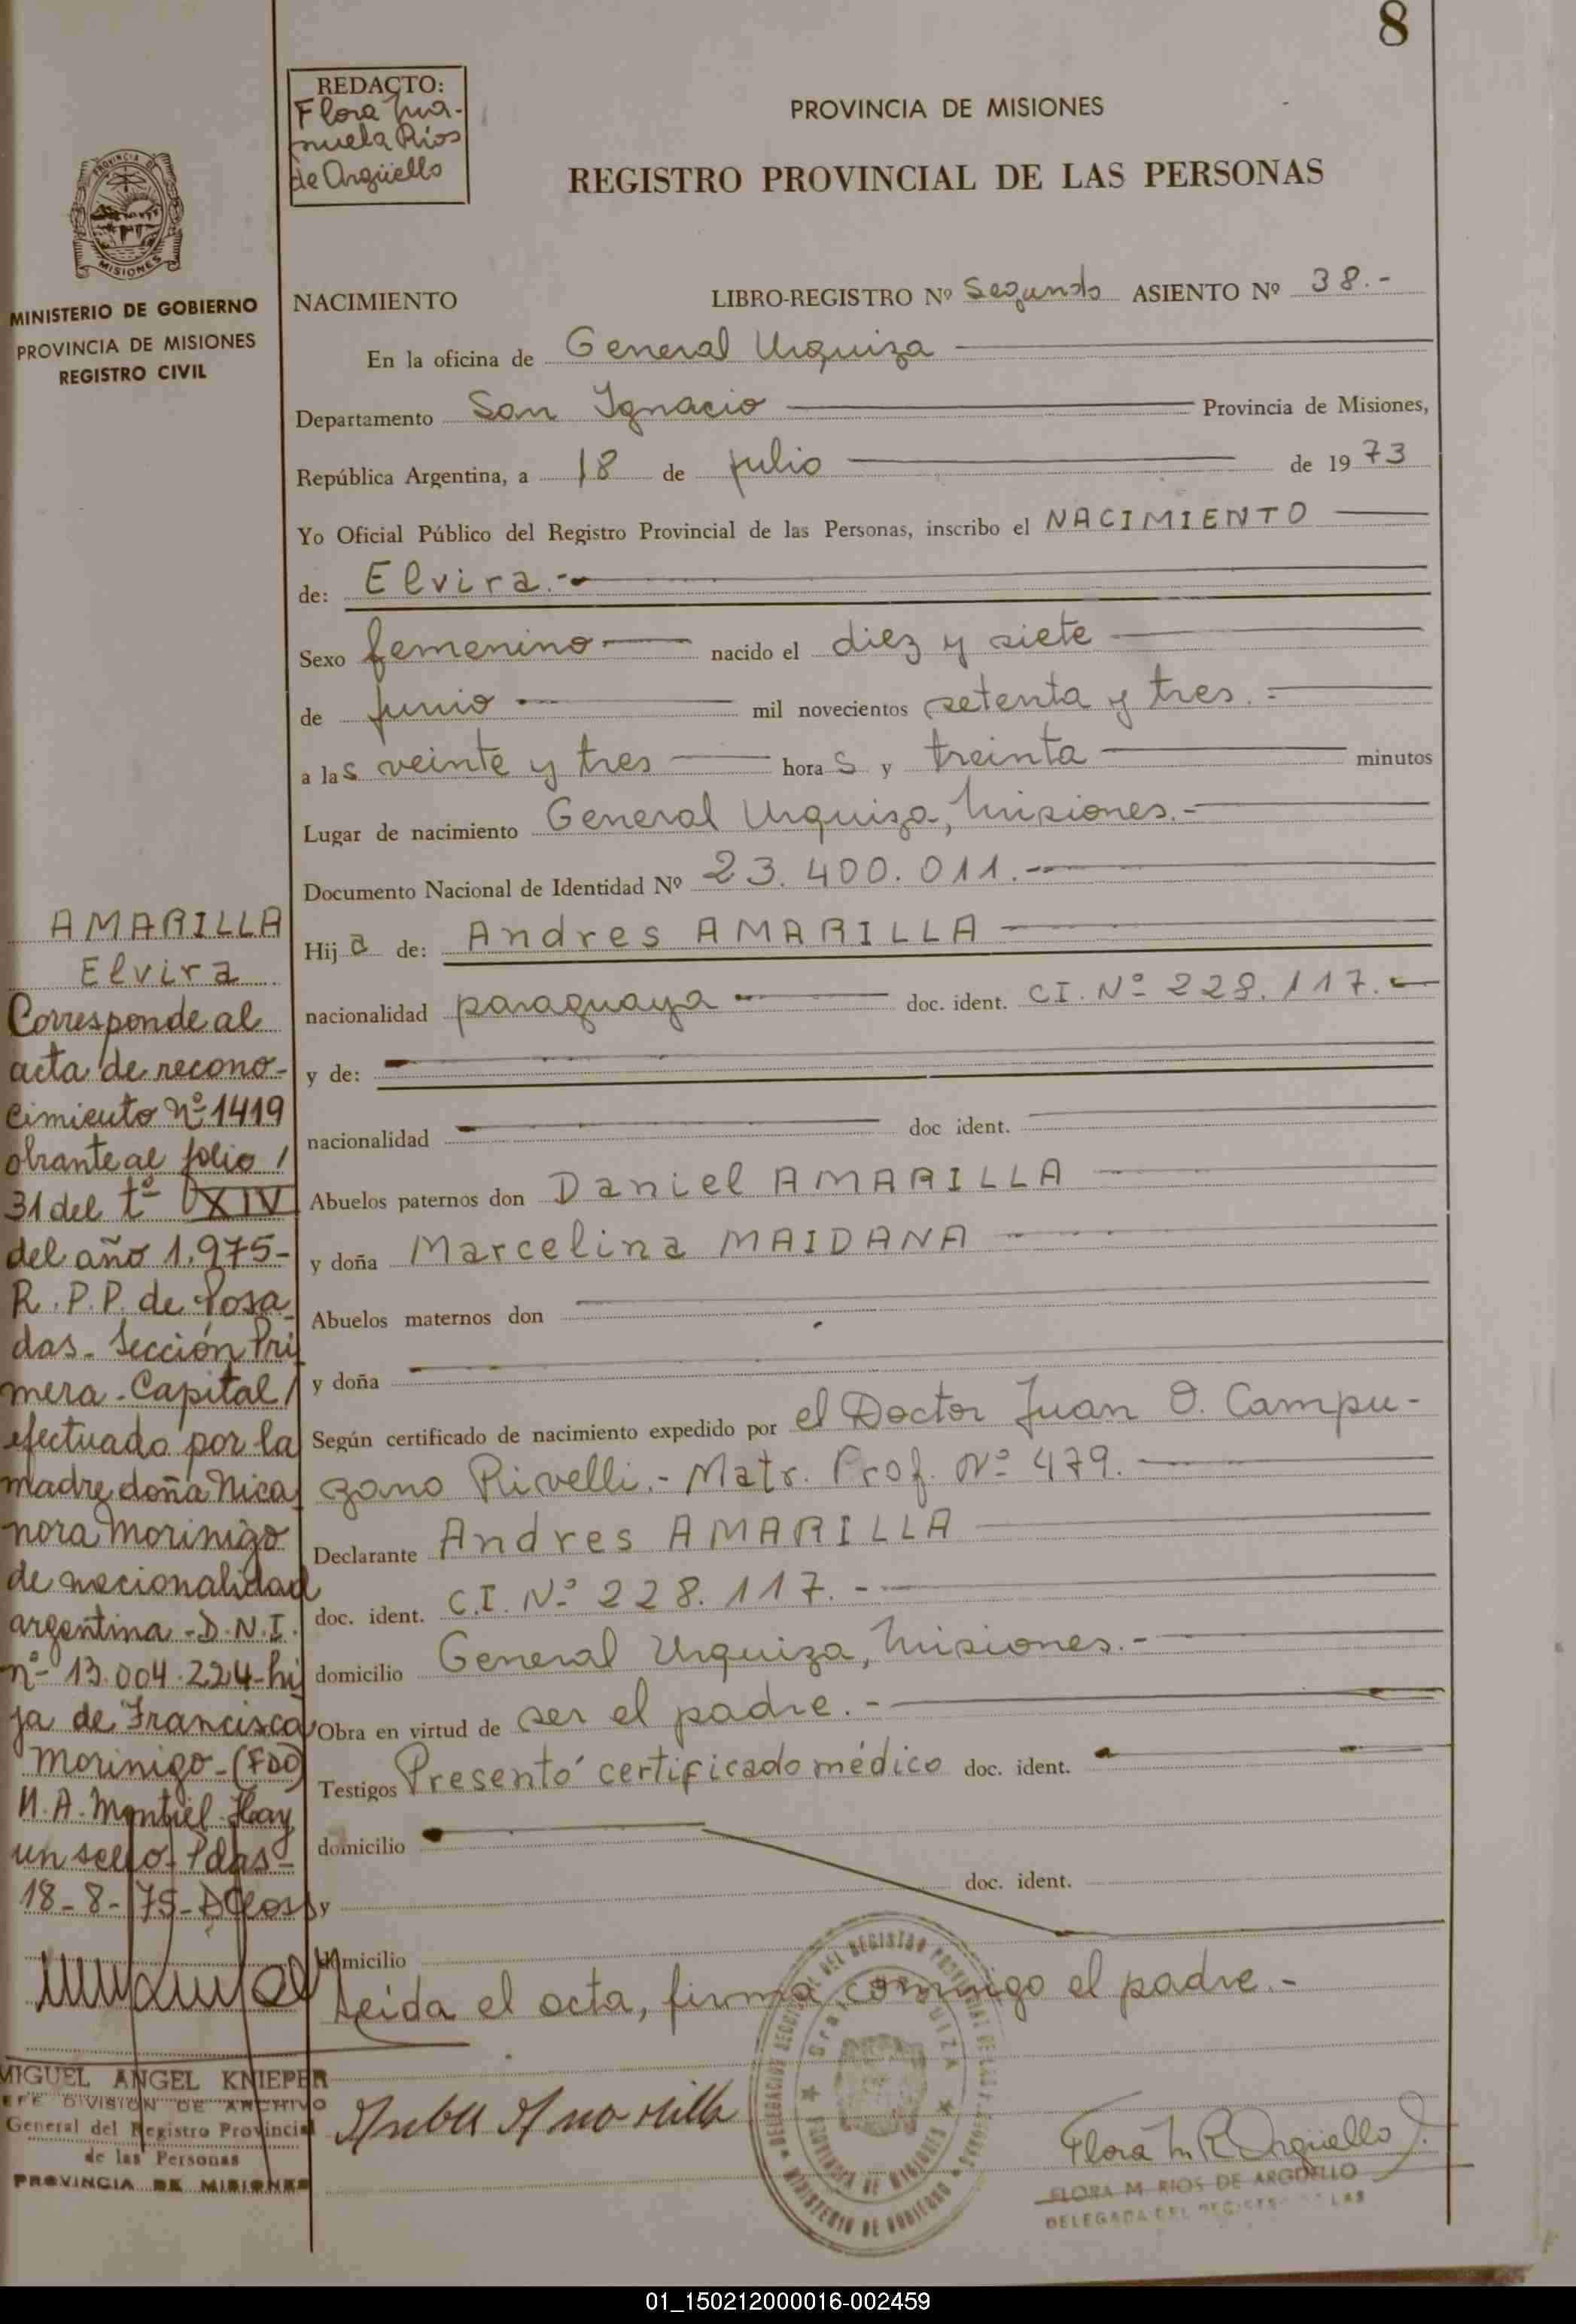 8
REDACTO:
Flora Ma-
nuela Ríos
de Argüello
PROVINCIA DE MISIONES
REGISTRO PROVINCIAL DE LAS PERSONAS
MISIONES
MINISTERIO DE GOBIERNO
PROVINCIA DE MISIONES
REGISTRO CIVIL
NACIMIENTO LIBRO-REGISTRO Nº Segundo ASIENTO Nº 38.-
En la oficina de General Urquiza
Departamento San Ignacio Provincia de Misiones,
República Argentina, a 18 de julio de 1973
Yo Oficial Público del Registro Provincial de las Personas, inscribo el NACIMIENTO
de: Elvira.-
Sexo femenino nacido el diez y siete
de junio mil novecientos setenta y tres.-
a las veinte y tres horas y treinta minutos
Lugar de nacimiento General Urquiza, Misiones.-
Documento Nacional de Identidad Nº 23.400.011.-
Hija de: Andres AMARILLA
nacionalidad paraguaya doc. ident. CI. Nº 228.117.-
y de:
nacionalidad doc ident.
Abuelos paternos don Daniel AMARILLA
y doña Marcelina MAIDANA
Abuelos maternos don
y doña
Según certificado de nacimiento expedido por el Doctor Juan O. Campu-
zano Rivelli.- Matr. Prof. Nº 479.
Declarante Andres AMARILLA
doc. ident. C.I. Nº 228.117.-
domicilio General Urquiza, Misiones.-
Obra en virtud de ser el padre.-
Testigos Presentó certificado médico doc. ident.
domicilio
doc. ident.
y
domicilio
Leida el acta, firma conmigo el padre.-
AMARILLA
Elvira
Corresponde al
acta de recono-
cimiento Nº 1419
obrante al folio /
31 del tº XIV
del año 1.975-
R.P.P. de Posa-
das- Sección Pri
mera-Capital/
efectuado por la
madre doña Nica
nora Morinigo
de nacionalidad
argentina-D.N.I.
nº 13.004.224-hi
ja de Francisca
Morinigo-(FDO)
M.A. Montiel-Hay
un sello-Pdas-
18-8-75-
MIGUEL ANGEL KNIEPER
JEFE DIVISION DE ARCHIVO
General del Registro Provincial
de las Personas
PROVINCIA DE MISIONES
PROVINCIA DE MISIONES
MINISTERIO DE GOBIERNO
Flora M. R. Argüello
FLORA M. RIOS DE ARGÜELLO
DELEGADA DEL REGISTRO LAS
01_150212000016-002459